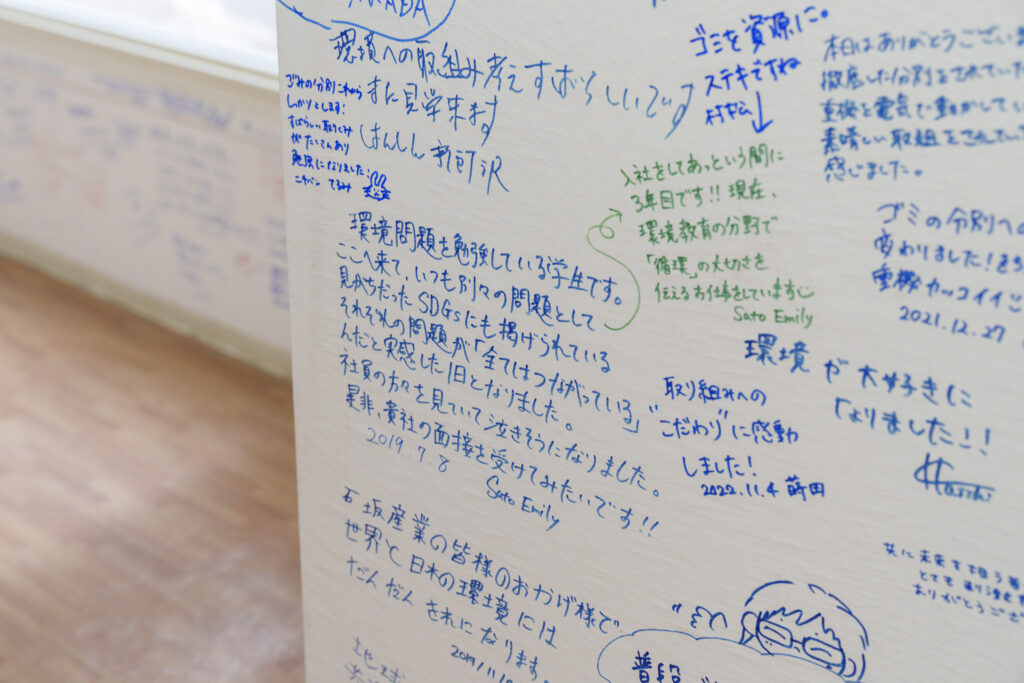 環境への取組み考えすばらしいです
また見学来ます
はんしん 新町 沢
ごみの分別これから
しっかりとします!
すばらしい取りくみ
がたくさんあり
勉強になりました!
環境問題を勉強している学生です。
ここへ来て、いつも別々の問題として
見がちだったSDGsにも掲げられている
それぞれの問題が「全てはつながっている」
んだと実感した1日となりました。
社員の方々を見ていて泣きそうになりました。
是非、貴社の面接を受けてみたいです!!
2019.7.8
Sato Emily
石坂産業の皆様のおかげ様で
世界と日本の環境には
だんだん きれになります。
2019/11/1
地球
ゴミを資源に。
ステキですね
入社をしてあっという間に
3年目です!! 現在、
環境教育の分野で
「循環」の大切さを
伝えるお仕事をしています
Sato Emily
取り組みへの
"こだわり"に感動
しました!
2022.11.4 蒔田
本日はありがとうございま
徹底した分別をされていた
重機を電気で動かしてい
素晴しい取組をされてい
感じました。
ゴミの分別への
変わりました!
重機カッコイイ
2021.12.27
環境が大好きに
なりました!!
共に未来を想う
とても
ありがとうござ
普段